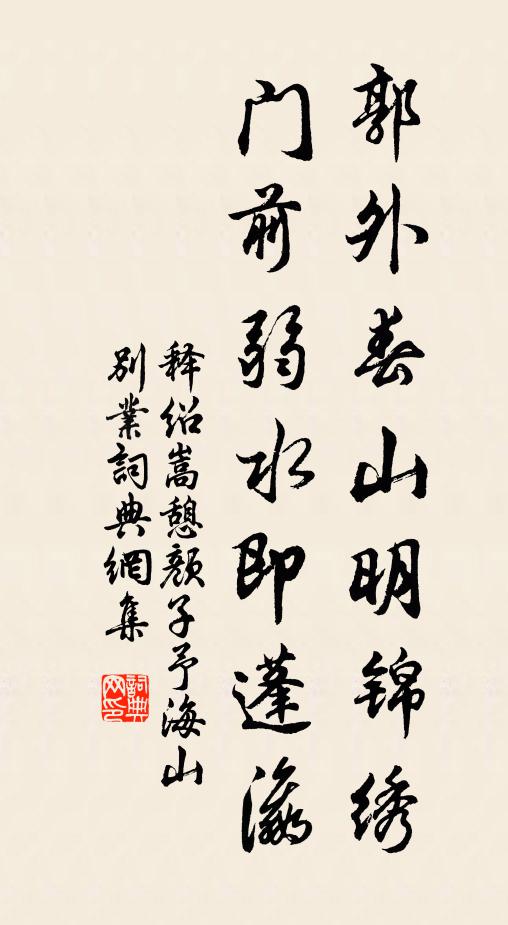 郭外春山明锦绣
门前弱水即蓬瀛
释绍嵩憩颜子予海山
别業詞典網集
詞典
网印